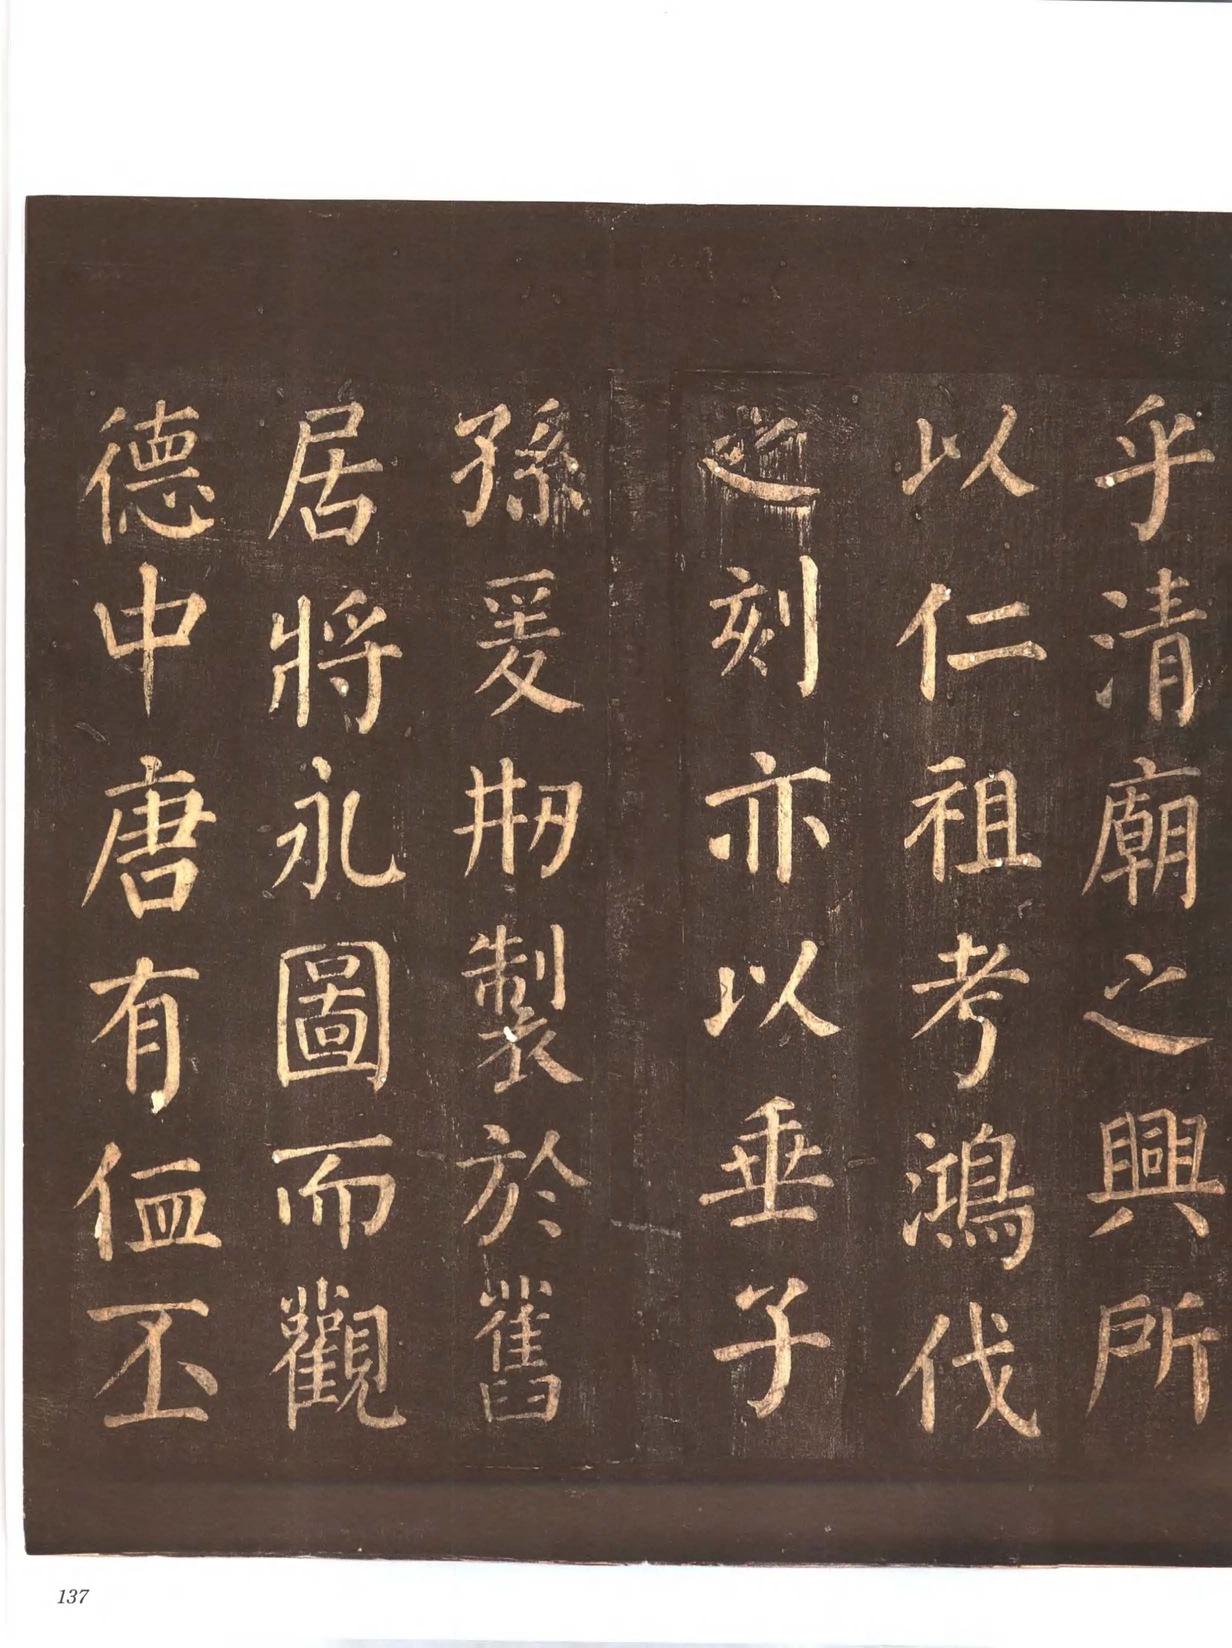 乎清廟之興所
以仁祖考鴻伐
之刻亦以垂子
孫爰刱製於舊
居將永圖而觀
德中唐有侐丕
137